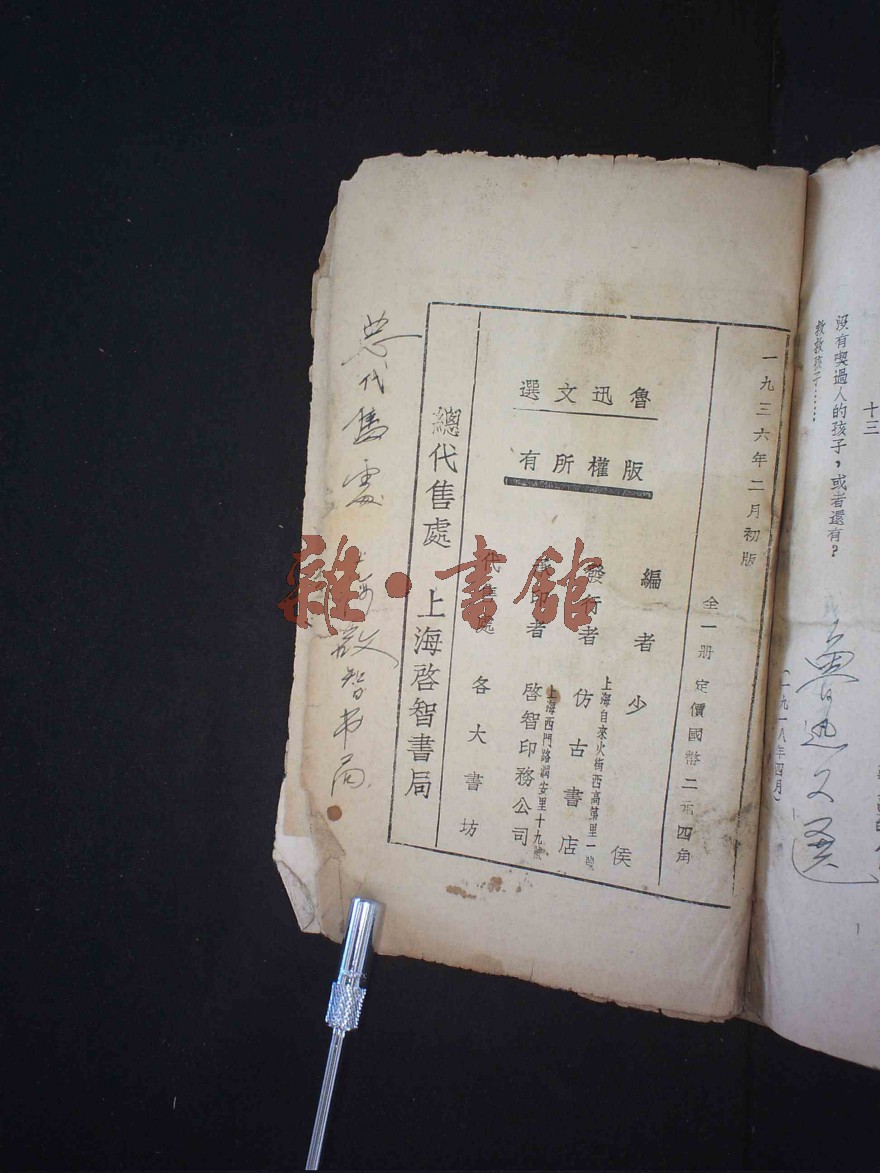 十三
沒有喫過人的孩子，或者還有？
救救孩子……
（一九一八年四月）
魯迅文选
一九三六年二月初版
全一册 定價國幣二元四角
魯迅文選
版權所有
編者 少侯
發行者 仿古書店
上海自來火街西高第里一號
承印者 啓智印務公司
上海西門路潤安里十九號
代售處 各大書坊
總代售處 上海啓智書局
总代售處 上海啟智书局
雜·書館